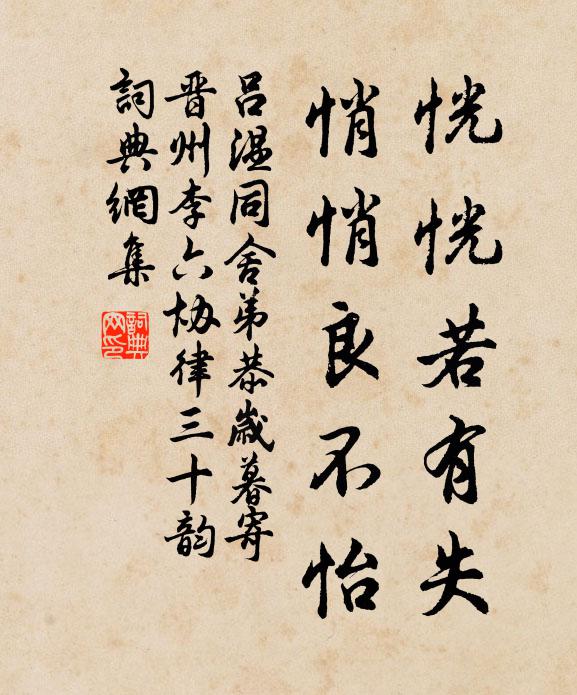 恍恍若有失
悄悄良不怡
吕温同舍弟恭歲暮寄
晋州李六协律三十韵
詞典網集
詞典网印